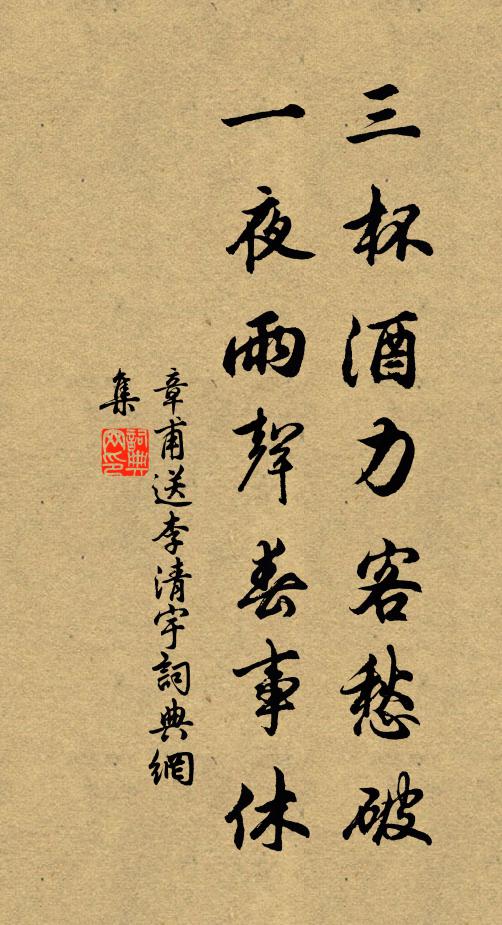 三杯酒力客愁破
一夜雨聲春事休
章甫送李清宇詞典網
集
詞典網印